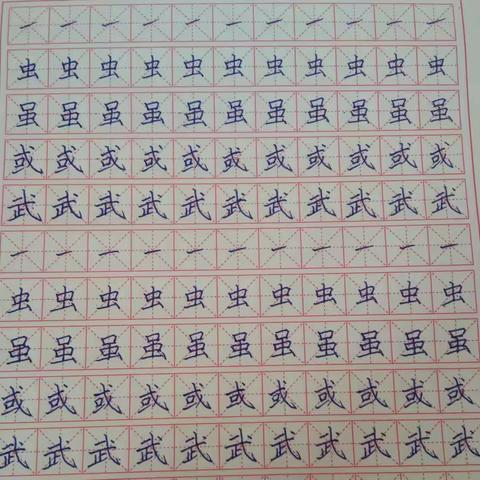 一一一一一一一一一一一
虫虫虫虫虫虫虫虫虫虫虫
虽虽虽虽虽虽虽虽虽虽虽
或或或或或或或或或或或
武武武武武武武武武武武
一一一一一一一一一一一
虫虫虫虫虫虫虫虫虫虫虫
虽虽虽虽虽虽虽虽虽虽虽
或或或或或或或或或或或
武武武武武武武武武武武